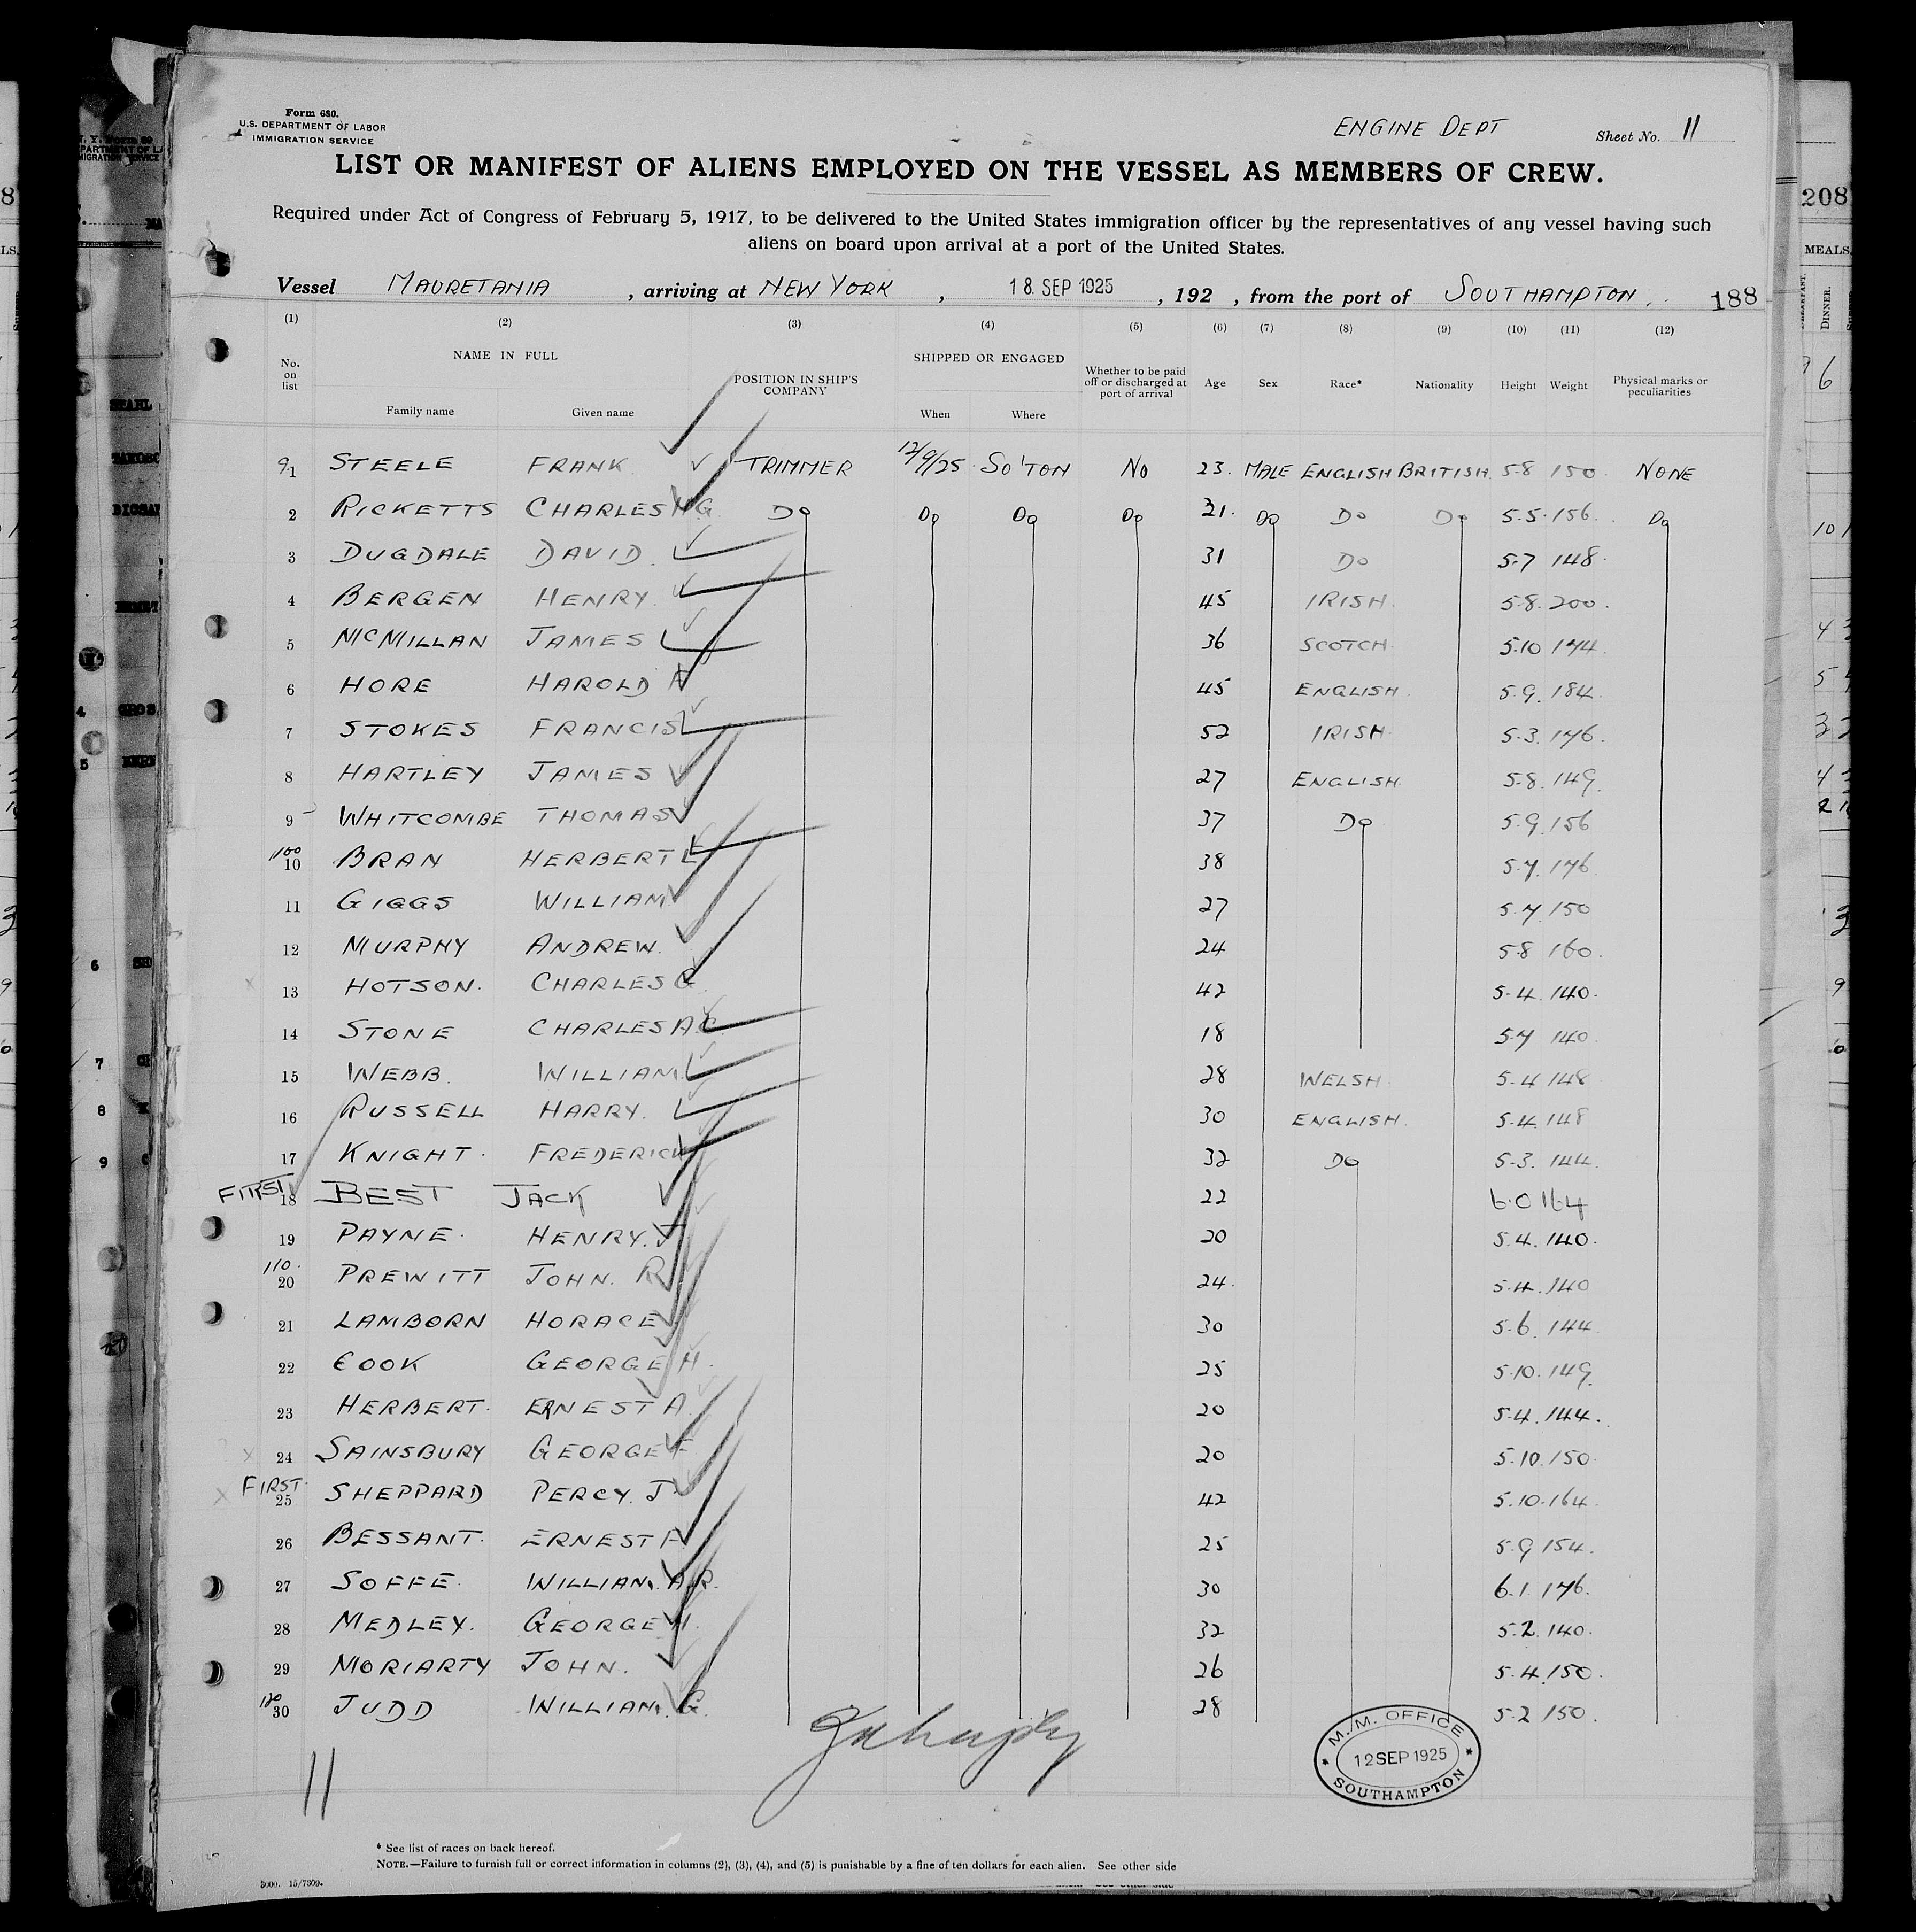 Form 680.
U.S. DEPARTMENT OF LABOR
IMMIGRATION SERVICE
ENGINE DEPT
Sheet No. 11
LIST OR MANIFEST OF ALIENS EMPLOYED ON THE VESSEL AS MEMBERS OF CREW.
Required under Act of Congress of February 5, 1917, to be delivered to the United States immigration officer by the representatives of any vessel having such
aliens on board upon arrival at a port of the United States.
Vessel MAURETANIA, arriving at NEW YORK, 18 SEP 1925, 192 , from the port of SOUTHAMPTON. 188
(1) (2) (3) (4) (5) (6) (7) (8) (9) (10) (11) (12)
No. on list NAME IN FULL Family name Given name POSITION IN SHIP'S COMPANY SHIPPED OR ENGAGED When Where Whether to be paid off or discharged at port of arrival Age Sex Race* Nationality Height Weight Physical marks or peculiarities
91 STEELE FRANK TRIMMER 12/9/25 SO'TON NO 23. MALE ENGLISH BRITISH 5-8 150 NONE
2 RICKETTS CHARLES H G Do Do Do Do 21. Do Do Do 5.5. 156. Do
3 DUGDALE DAVID. 31 Do 5-7 148.
4 BERGEN HENRY. 45 IRISH. 5.8. 200.
5 McMILLAN JAMES 36 SCOTCH. 5.10 174.
6 HORE HAROLD 45 ENGLISH. 5.9. 184.
7 STOKES FRANCIS 52 IRISH. 5.3. 176.
8 HARTLEY JAMES 27 ENGLISH. 5.8. 149.
9 WHITCOMBE THOMAS 37 Do 5.9. 156
1100 10 BRAN HERBERT 38 5.7. 176
11 GIGGS WILLIAM 27 5.7. 150
12 MURPHY ANDREW. 24 5-8 160.
13 HOTSON. CHARLES G 42 5.4. 140.
14 STONE CHARLES A.C 18 5.7 140.
15 WEBB. WILLIAM. 28 WELSH. 5.4 148
16 RUSSELL HARRY. 30 ENGLISH. 5.4. 148
17 KNIGHT. FREDERICK 32 Do 5.3. 144.
FIRST 18 BEST JACK 22 6.0 164
19 PAYNE. HENRY. J 20 5.4. 140.
110. 20 PREWITT JOHN. R 24. 5.4. 140
21 LAMBORN HORACE 30 5.6. 144
22 COOK GEORGE H. 25 5.10. 149.
23 HERBERT. ERNEST A 20 5.4. 144.
24 SAINSBURY GEORGE F. 20 5.10. 150.
FIRST. 25 SHEPPARD PERCY. J 42 5.10. 164.
26 BESSANT. ERNEST 25 5.9 154.
27 SOFFE. WILLIAM. A.R. 30 6.1. 176.
28 MEDLEY. GEORGE H. 32 5.2. 140.
29 MORIARTY JOHN. 26 5.4. 150.
120 30 JUDD WILLIAM. G. 28 5.2 150.
11
M.M. OFFICE
12 SEP 1925
SOUTHAMPTON
* See list of races on back hereof.
NOTE.—Failure to furnish full or correct information in columns (2), (3), (4), and (5) is punishable by a fine of ten dollars for each alien. See other side
5000. 15/7309.
208
MEALS.
DINNER.